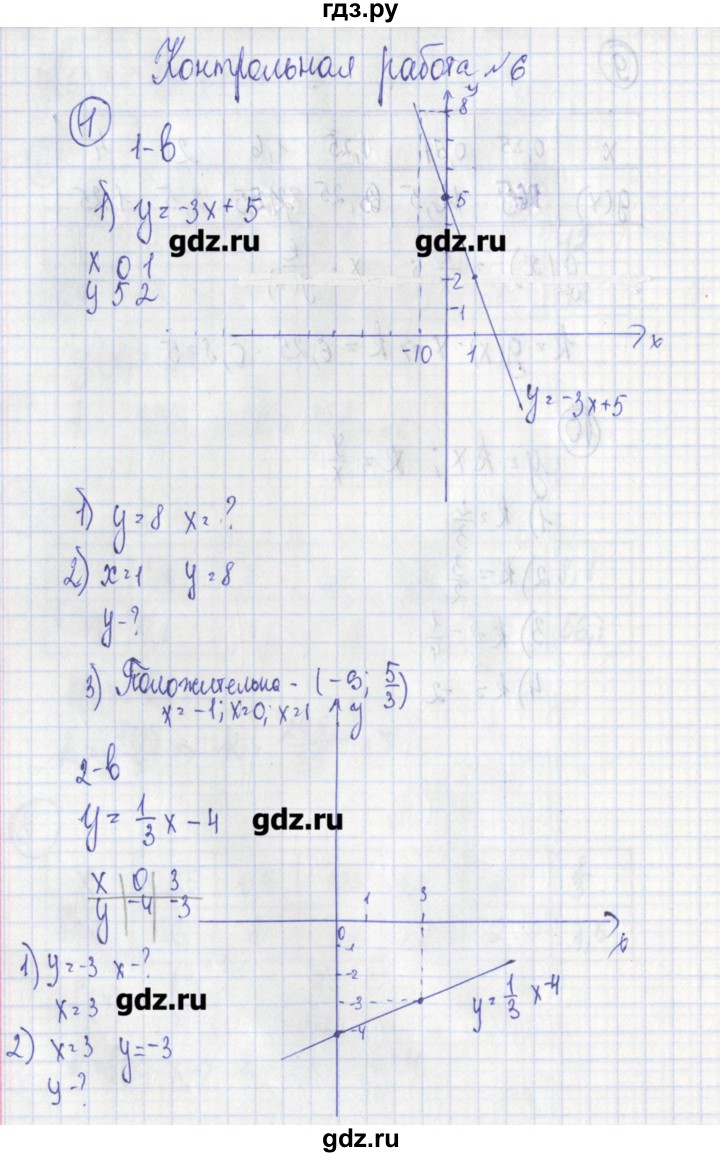 гдз.ру
Контрольная работа №6
1
1-в
1) y = -3x + 5
x 0 1
y 5 2
gdz.ru
gdz.ru
y
8
5
2
1
-1 0 1 x
y = -3x + 5
1) y = 8 x = ?
2) x = 1 y = 8
y - ?
3) Положительна - (-∞; 5/3)
x = -1; x = 0; x = 1
y
2-в
y = 1/3 x - 4
gdz.ru
x 0 3
y -4 -3
1 3
0 x
-1
-2
-3
-4
y = 1/3 x - 4
1) y = -3 x - ?
x = 3
gdz.ru
2) x = 3 y = -3
y - ?
gdz.ru